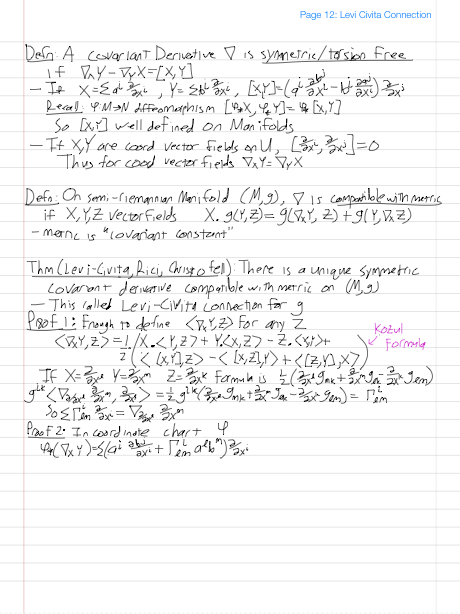 Page 12: Levi Civita Connection
Defn: A covariant Derivative ∇ is symmetric/torsion free
if ∇ₓY - ∇ᵧX = [X,Y]
- If X = Σaⁱ ∂/∂xⁱ, Y = Σbⁱ ∂/∂xⁱ, [X,Y] = (aⁱ ∂bʲ/∂xⁱ - bⁱ ∂aʲ/∂xⁱ) ∂/∂xʲ
Recall: φ M→N diffeomorphism [φ*X, φ*Y] = φ*[X,Y]
So [X,Y] well defined on Manifolds
- If X,Y are coord vector fields on U, [∂/∂xⁱ, ∂/∂xʲ] = 0
Thus for coord vector fields ∇ₓY = ∇ᵧX
Defn: On semi-riemannian Manifold (M,g), ∇ is compatible with metric
if X,Y,Z vector fields X. g(Y,Z) = g(∇ₓY, Z) + g(Y, ∇ₓZ)
- metric is "covariant constant"
Thm (Levi-Civita, Rici, Christofell): There is a unique symmetric
covariant derivative compatible with metric on (M,g)
- This called Levi-Civita connection for g
Proof 1: Enough to define <∇ₓY,Z> for any Z
<∇ₓY,Z> = 1/2 (X.<Y,Z> + Y.<X,Z> - Z.<X,Y> +
<[X,Y],Z> - <[X,Z],Y> + <[Z,Y],X>)
Kozul
Formula
If X = ∂/∂xˡ Y = ∂/∂xᵐ Z = ∂/∂xᵏ formula is 1/2 (∂/∂xˡ gₘₖ + ∂/∂xᵐ gₗₖ - ∂/∂xᵏ gₗₘ)
gⁱᵏ <∇∂/∂xˡ ∂/∂xᵐ, ∂/∂xᵏ> = 1/2 gⁱᵏ (∂/∂xˡ gₘₖ + ∂/∂xᵐ gₗₖ - ∂/∂xᵏ gₗₘ) = Γⁱₗₘ
So Σ Γⁱₗₘ ∂/∂xⁱ = ∇∂/∂xˡ ∂/∂xᵐ
Proof 2: In coordinate chart φ
φ*(∇ₓY) = Σ(aⁱ ∂bʲ/∂xⁱ + Γⁱₗₘ aˡbᵐ) ∂/∂xⁱ